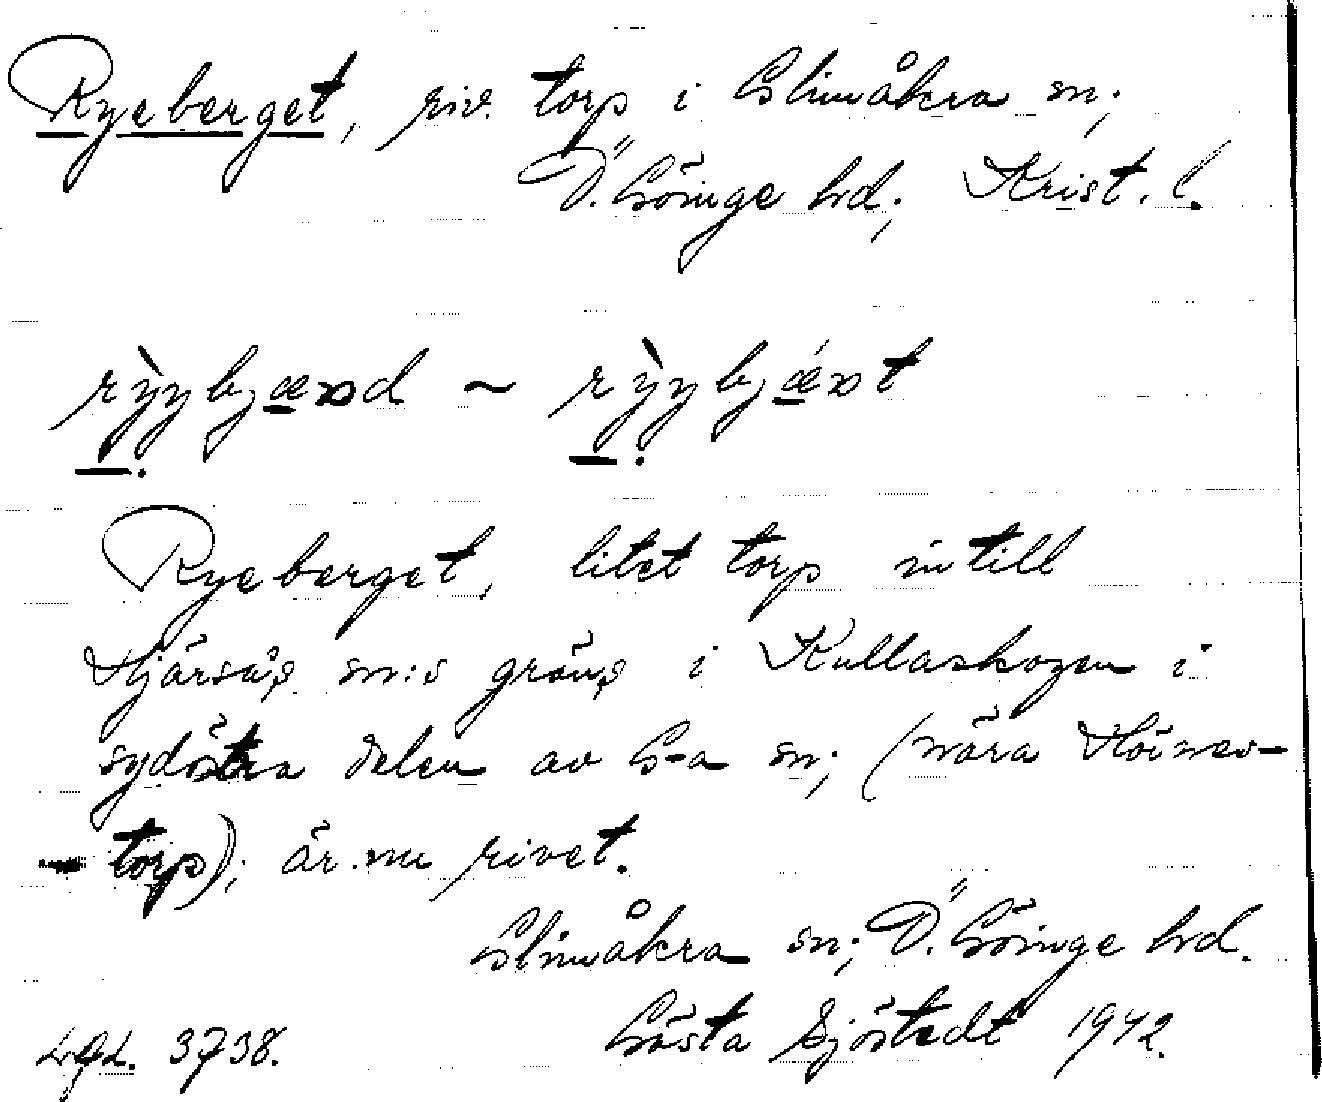 Ryeberget, riv. torp i Glimåkra sn;
Ö. Göinge hd; Krist. l.
Ryeberget, litet torp intill
Hjärsås sn:s gräns i Kullaskogen i
sydöstra delen av G-a sn; (nära
torp); är nu rivet.
Glimåkra sn; Ö. Göinge hd.
Gösta Sjöstedt 1942.
3738.